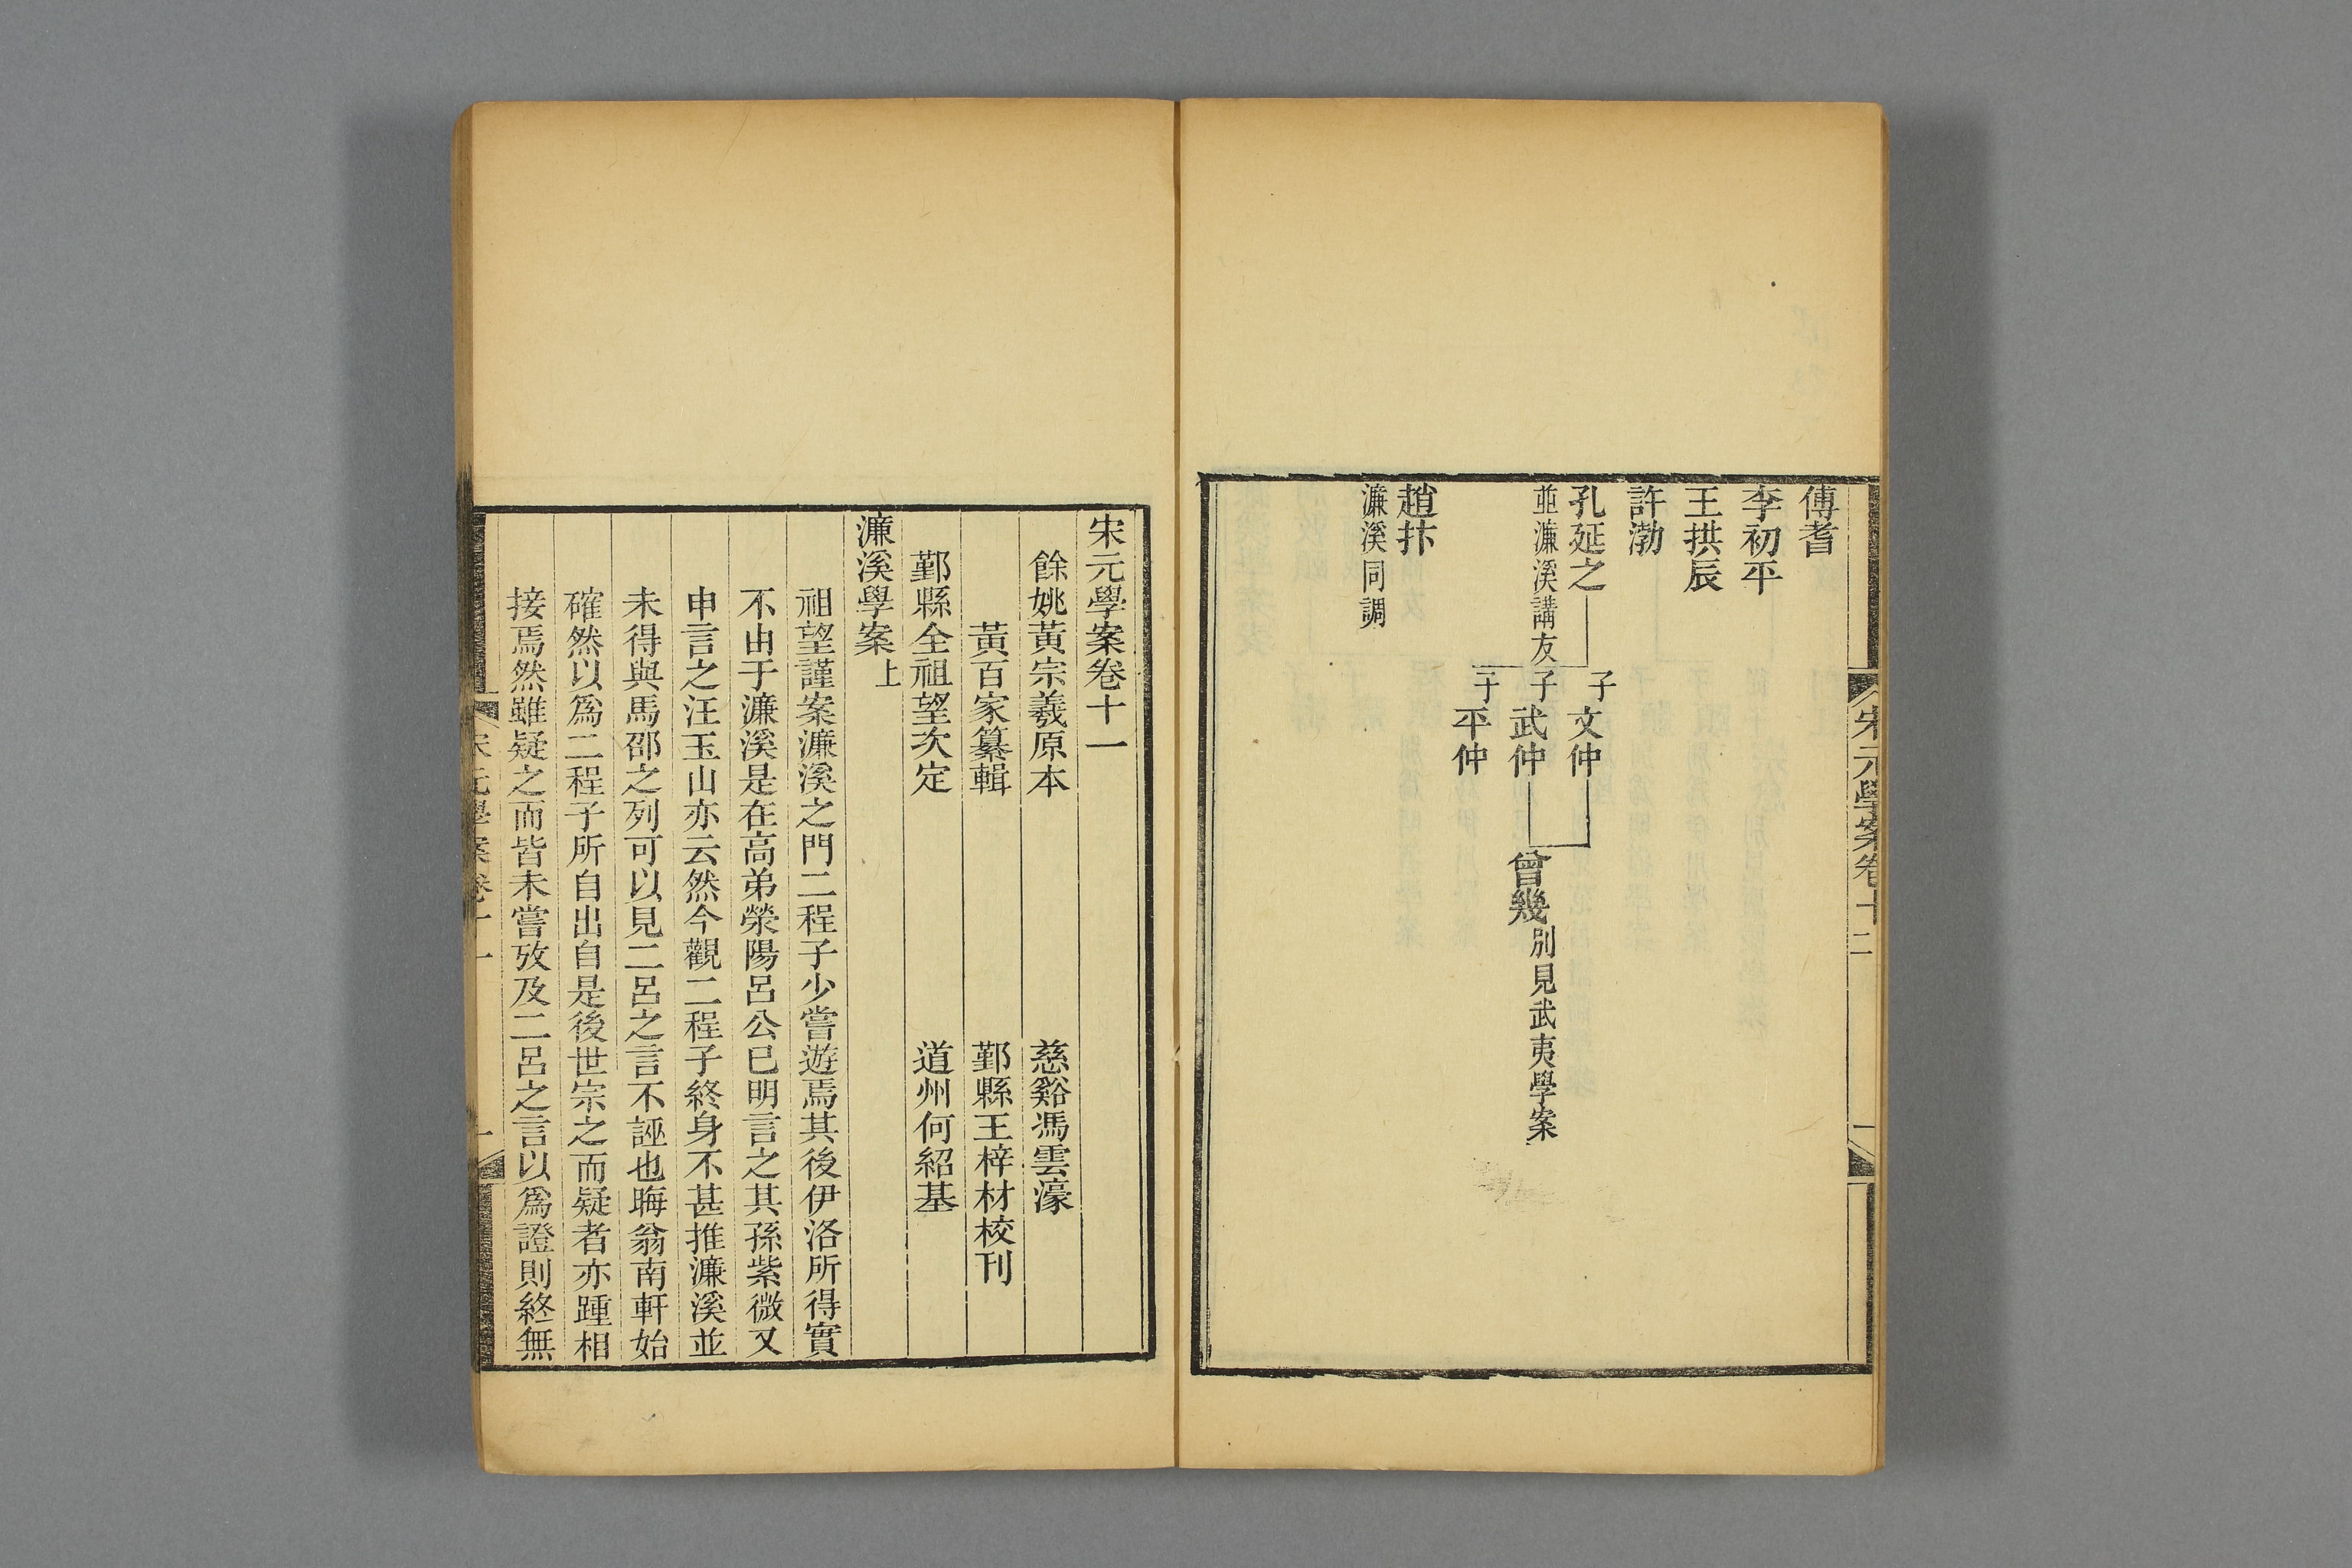 宋元學案卷十一
傅耆
李初平
王拱辰
許渤
孔延之
並濂溪講友
子文仲
子武仲
子平仲
曾幾別見武夷學案
趙抃
濂溪同調
宋元學案卷十一
餘姚黃宗羲原本 慈谿馮雲濠
黃百家纂輯 鄞縣王梓材校刊
鄞縣全祖望次定 道州何紹基
濂溪學案上
祖望謹案濂溪之門二程子少嘗遊焉其後伊洛所得實
不由于濂溪是在高弟滎陽呂公已明言之其孫紫微又
申言之汪玉山亦云然今觀二程子終身不甚推濂溪並
未得與馬邵之列可以見二呂之言不誣也晦翁南軒始
確然以爲二程子所自出自是後世宗之而疑者亦踵相
接焉然雖疑之而皆未嘗攷及二呂之言以爲證則終無
宋元學案卷十一